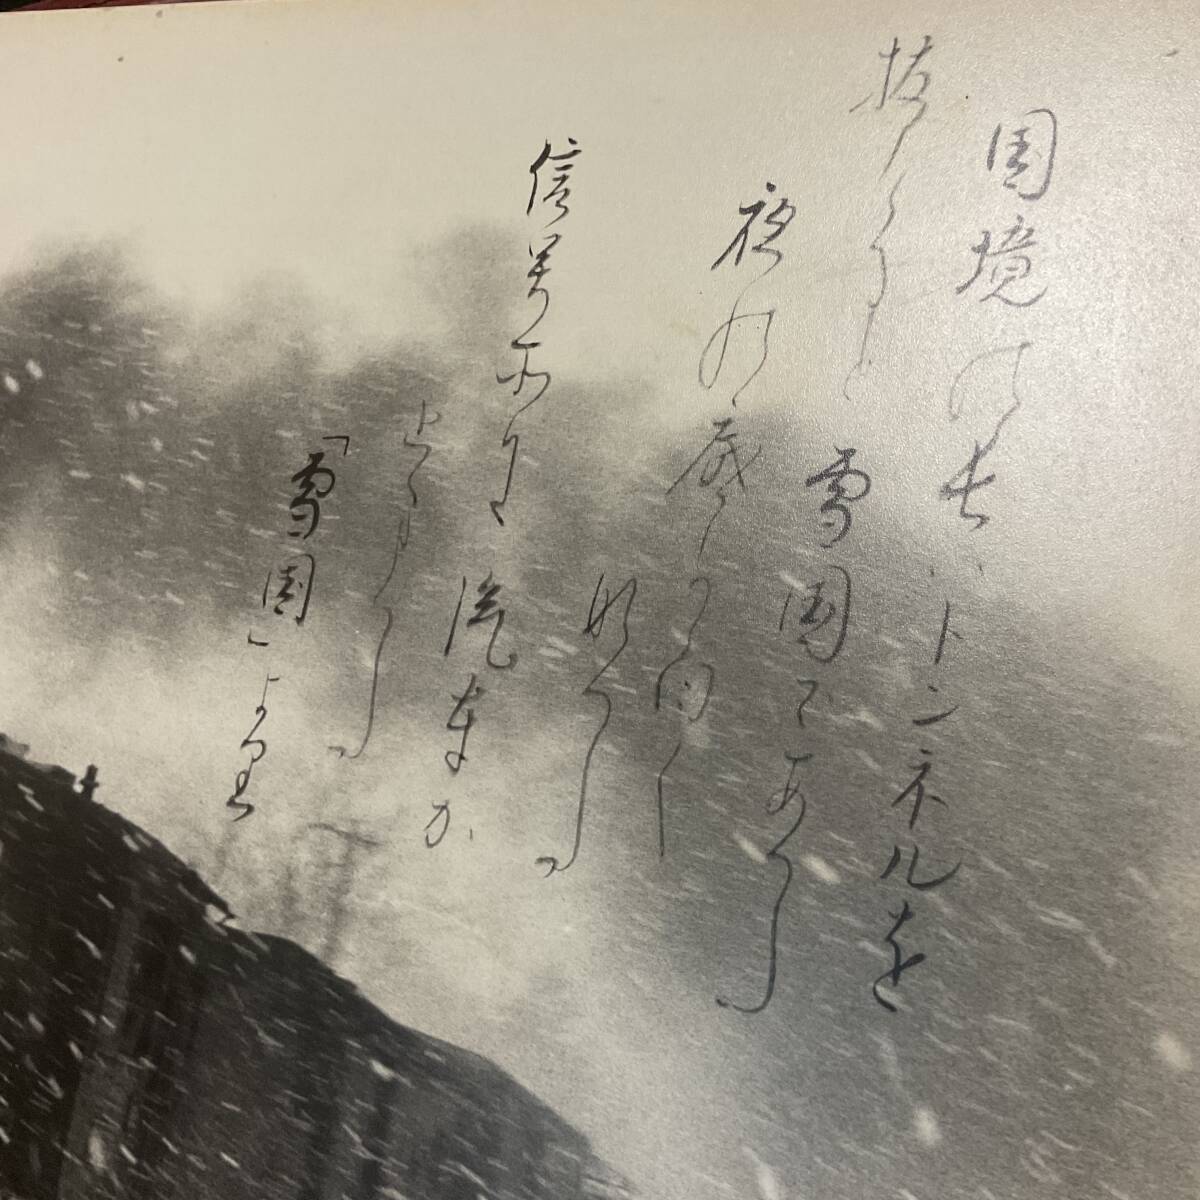 国境の長いトンネルを
抜けると雪国であった
夜の底が白く
なった
信号所に汽車が
止まった
「雪国」より